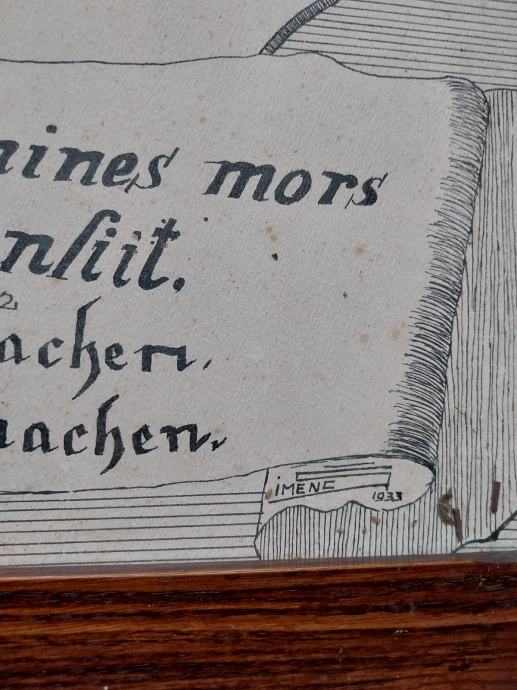 ines mors
nſiit.
2
achen.
aachen.
IMENE
1933